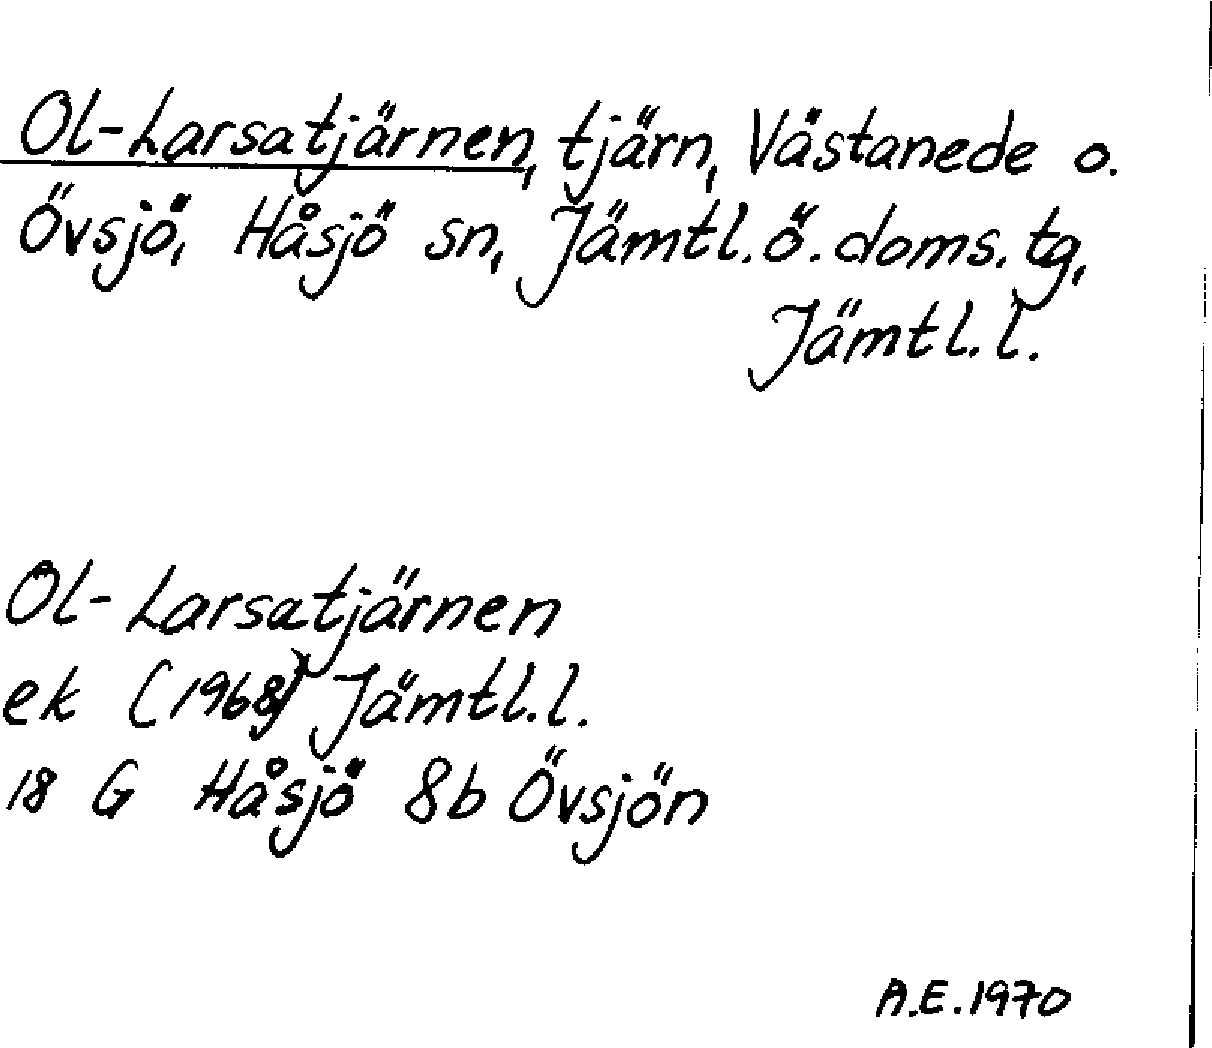 Ol-Larsatjärnen, tjärn, Västanede o.
Övsjö, Håsjö sn, Jämtl. ö. doms. tg,
Jämtl. l.
Ol-Larsatjärnen
ek (1968) Jämtl. l.
18 G Håsjö 8b Övsjön
A.E. 1970